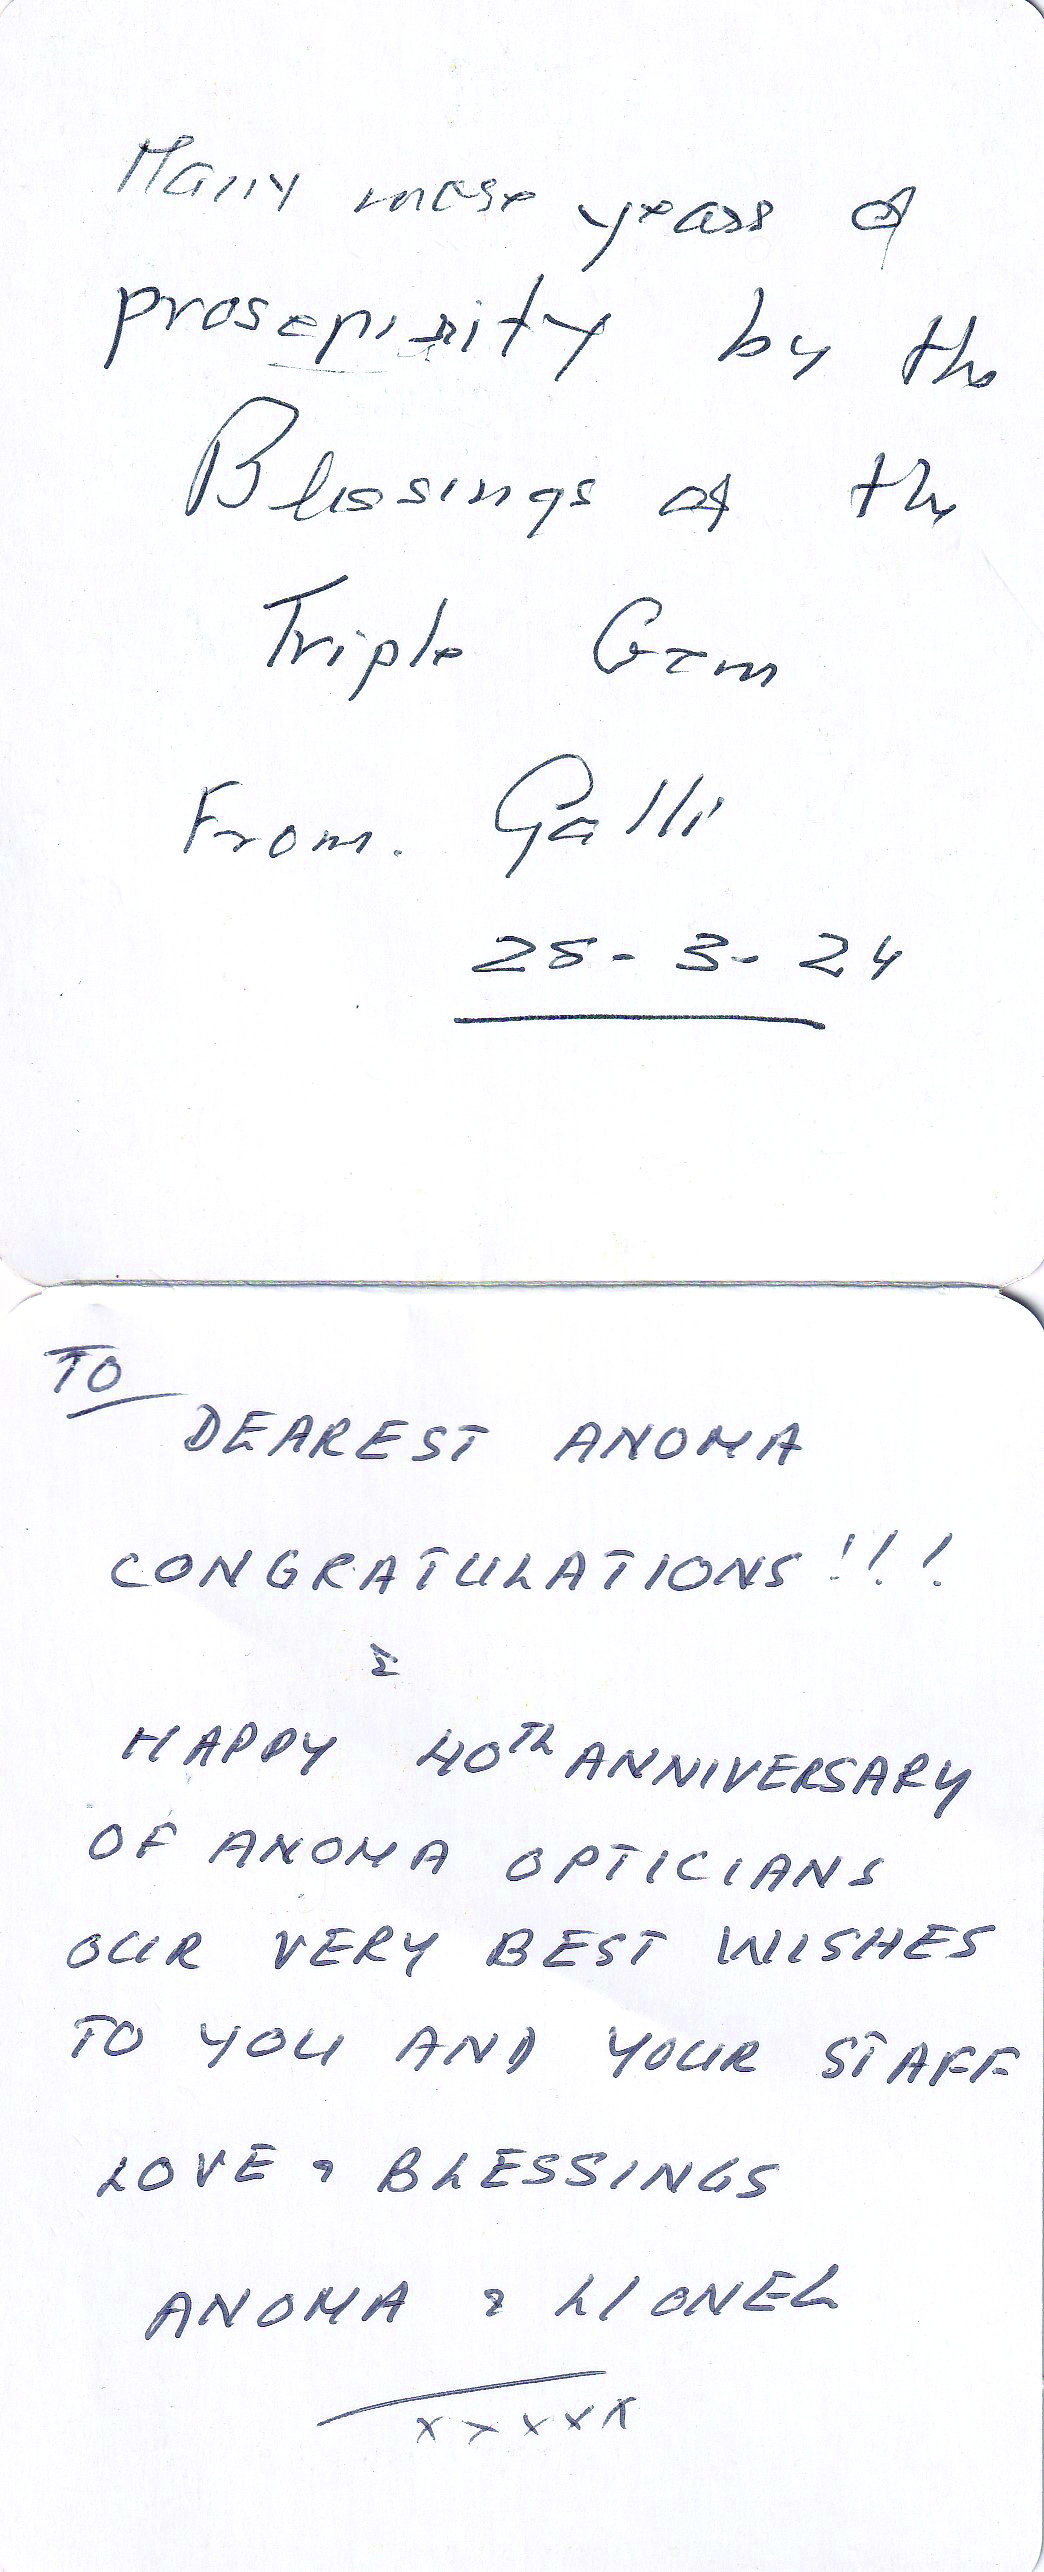 Many more years of
prosepirity by the
Blessings of the
Triple Gem
From. Galli
28-3-24
TO
DEAREST ANOMA
CONGRATULATIONS!!!
&
HAPPY 40TH ANNIVERSARY
OF ANOMA OPTICIANS
OUR VERY BEST WISHES
TO YOU AND YOUR STAFF
LOVE & BLESSINGS
ANOMA & LIONEL
xxxxx